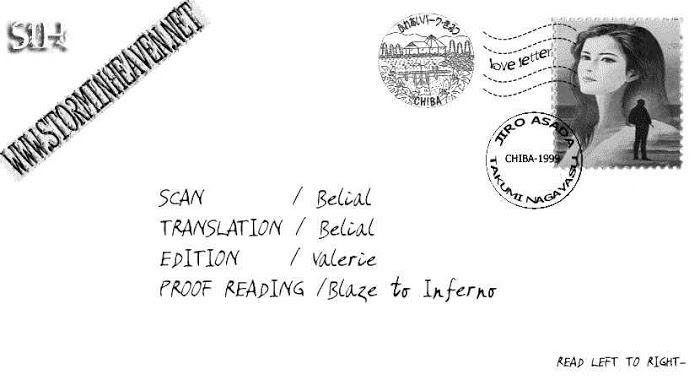 SIH
WWW.STORMINHEAVEN.NET
CHIBA
love letter
JIRO ASADA
CHIBA-1999
TAKUMI NAGAYASU
SCAN / Belial
TRANSLATION / Belial
EDITION / Valerie
PROOF READING /Blaze to Inferno
READ LEFT TO RIGHT-